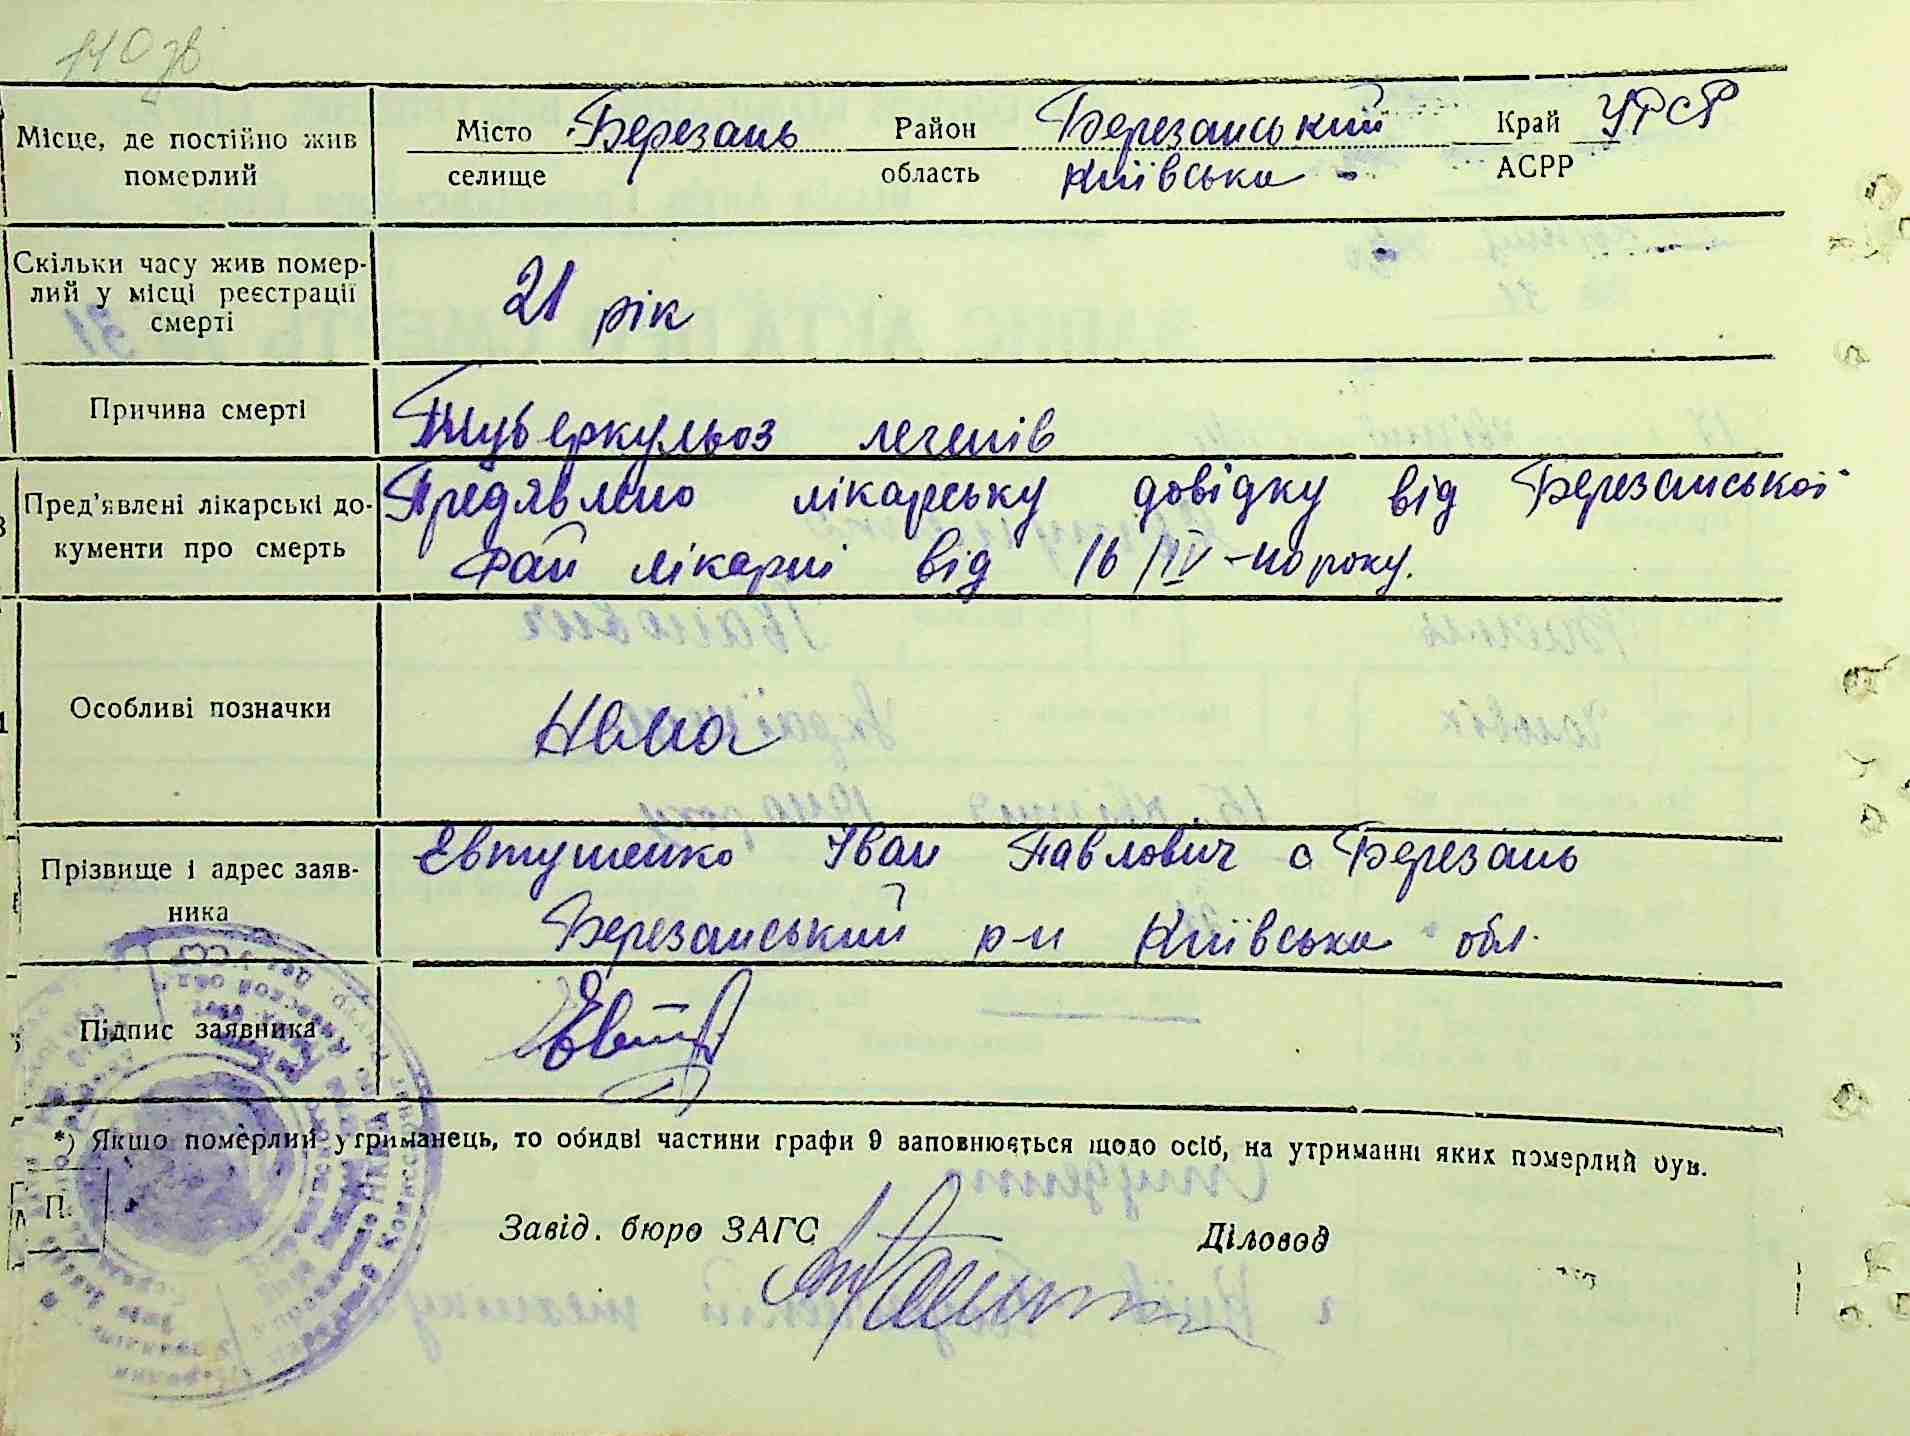 110 зв
Місце, де постійно жив померлий
Місто селище Березань Район область Березанський Київська Край АСРР УРСР
Скільки часу жив померлий у місці реєстрації смерті
21 рік
Причина смерті
Туберкульоз легенів
Пред'явлені лікарські документи про смерть
Предявлено лікарську довідку від Березанської
рай лікарні від 16/IV-40 року.
Особливі позначки
Нема
Прізвище і адрес заявника
Евтушенко Іван Павлович с Березань
Березанський р-н Київська обл.
Підпис заявника
*) Якщо померлий утриманець, то обидві частини графи 9 заповнюється щодо осіб, на утриманні яких померлий був.
П.
Завід. бюро ЗАГС
Діловод